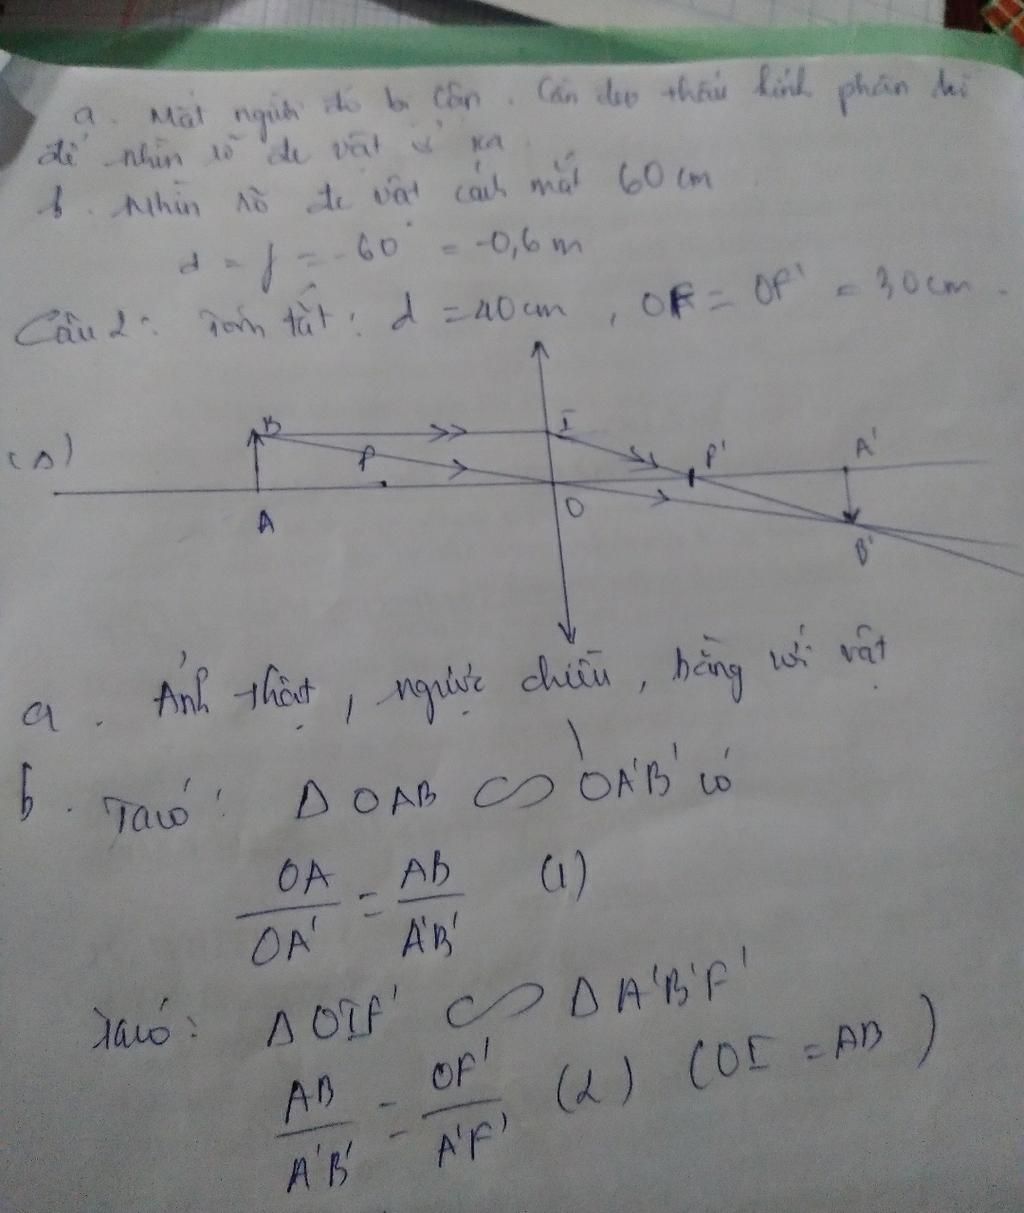 a. Mắt người đó bị cận. Cần đeo thấu kính phân kì
để nhìn rõ đc vật ở xa.
b. Nhìn rõ đc vật cách mắt 60 cm.
d = f = -60 = -0,6 m
Câu 2: Tóm tắt: d = 40cm, OF = OF' = 30cm.
B I
(Δ) F F' A'
A O B'
a. Ảnh thật, ngược chiều, bằng với vật
b. Ta có: Δ OAB ∽ OA'B' có
OA/OA' = AB/A'B' (1)
Ta có: Δ OIF' ∽ Δ A'B'F'
AB/A'B' = OF'/A'F' (2) (OI = AB)